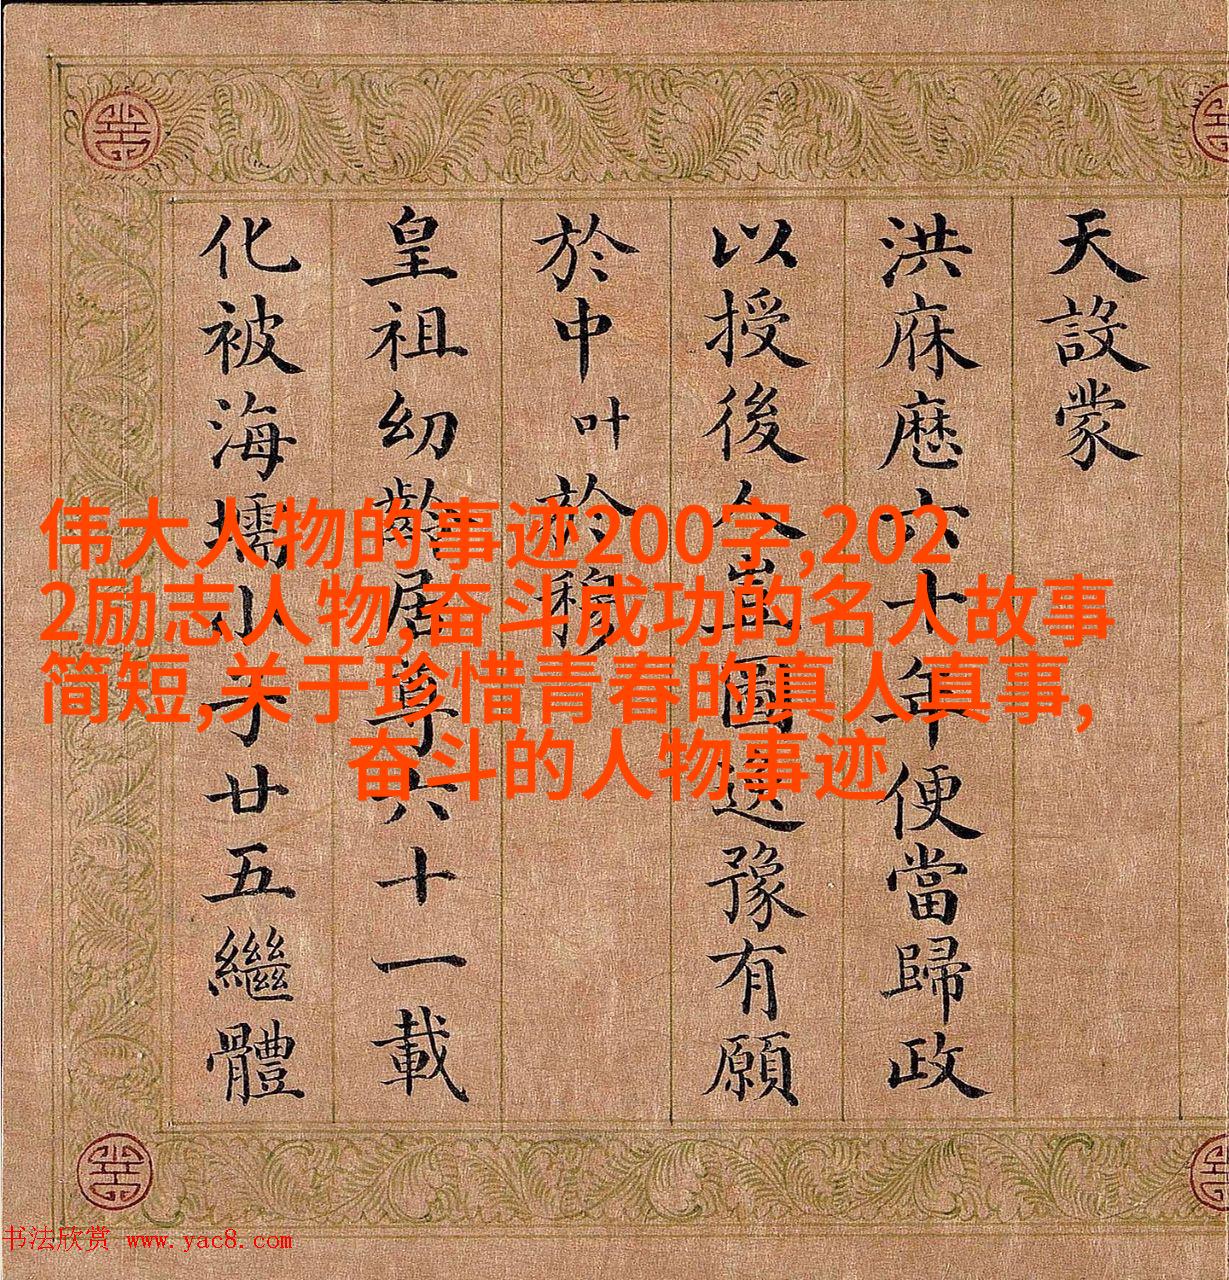 天設蒙
洪庥厯六十年便當歸政
以授後人豈圖逸豫有願
於中叶於穆
皇祖幼齡居尊六十一載
化被海壖小子廿五繼體
伟大人物的事迹200字,202
2励志人物,奋斗成功的名人故事
简短,关于珍惜青春的真人真事,
奋斗的人物事迹
书法欣赏 www.yac8.com